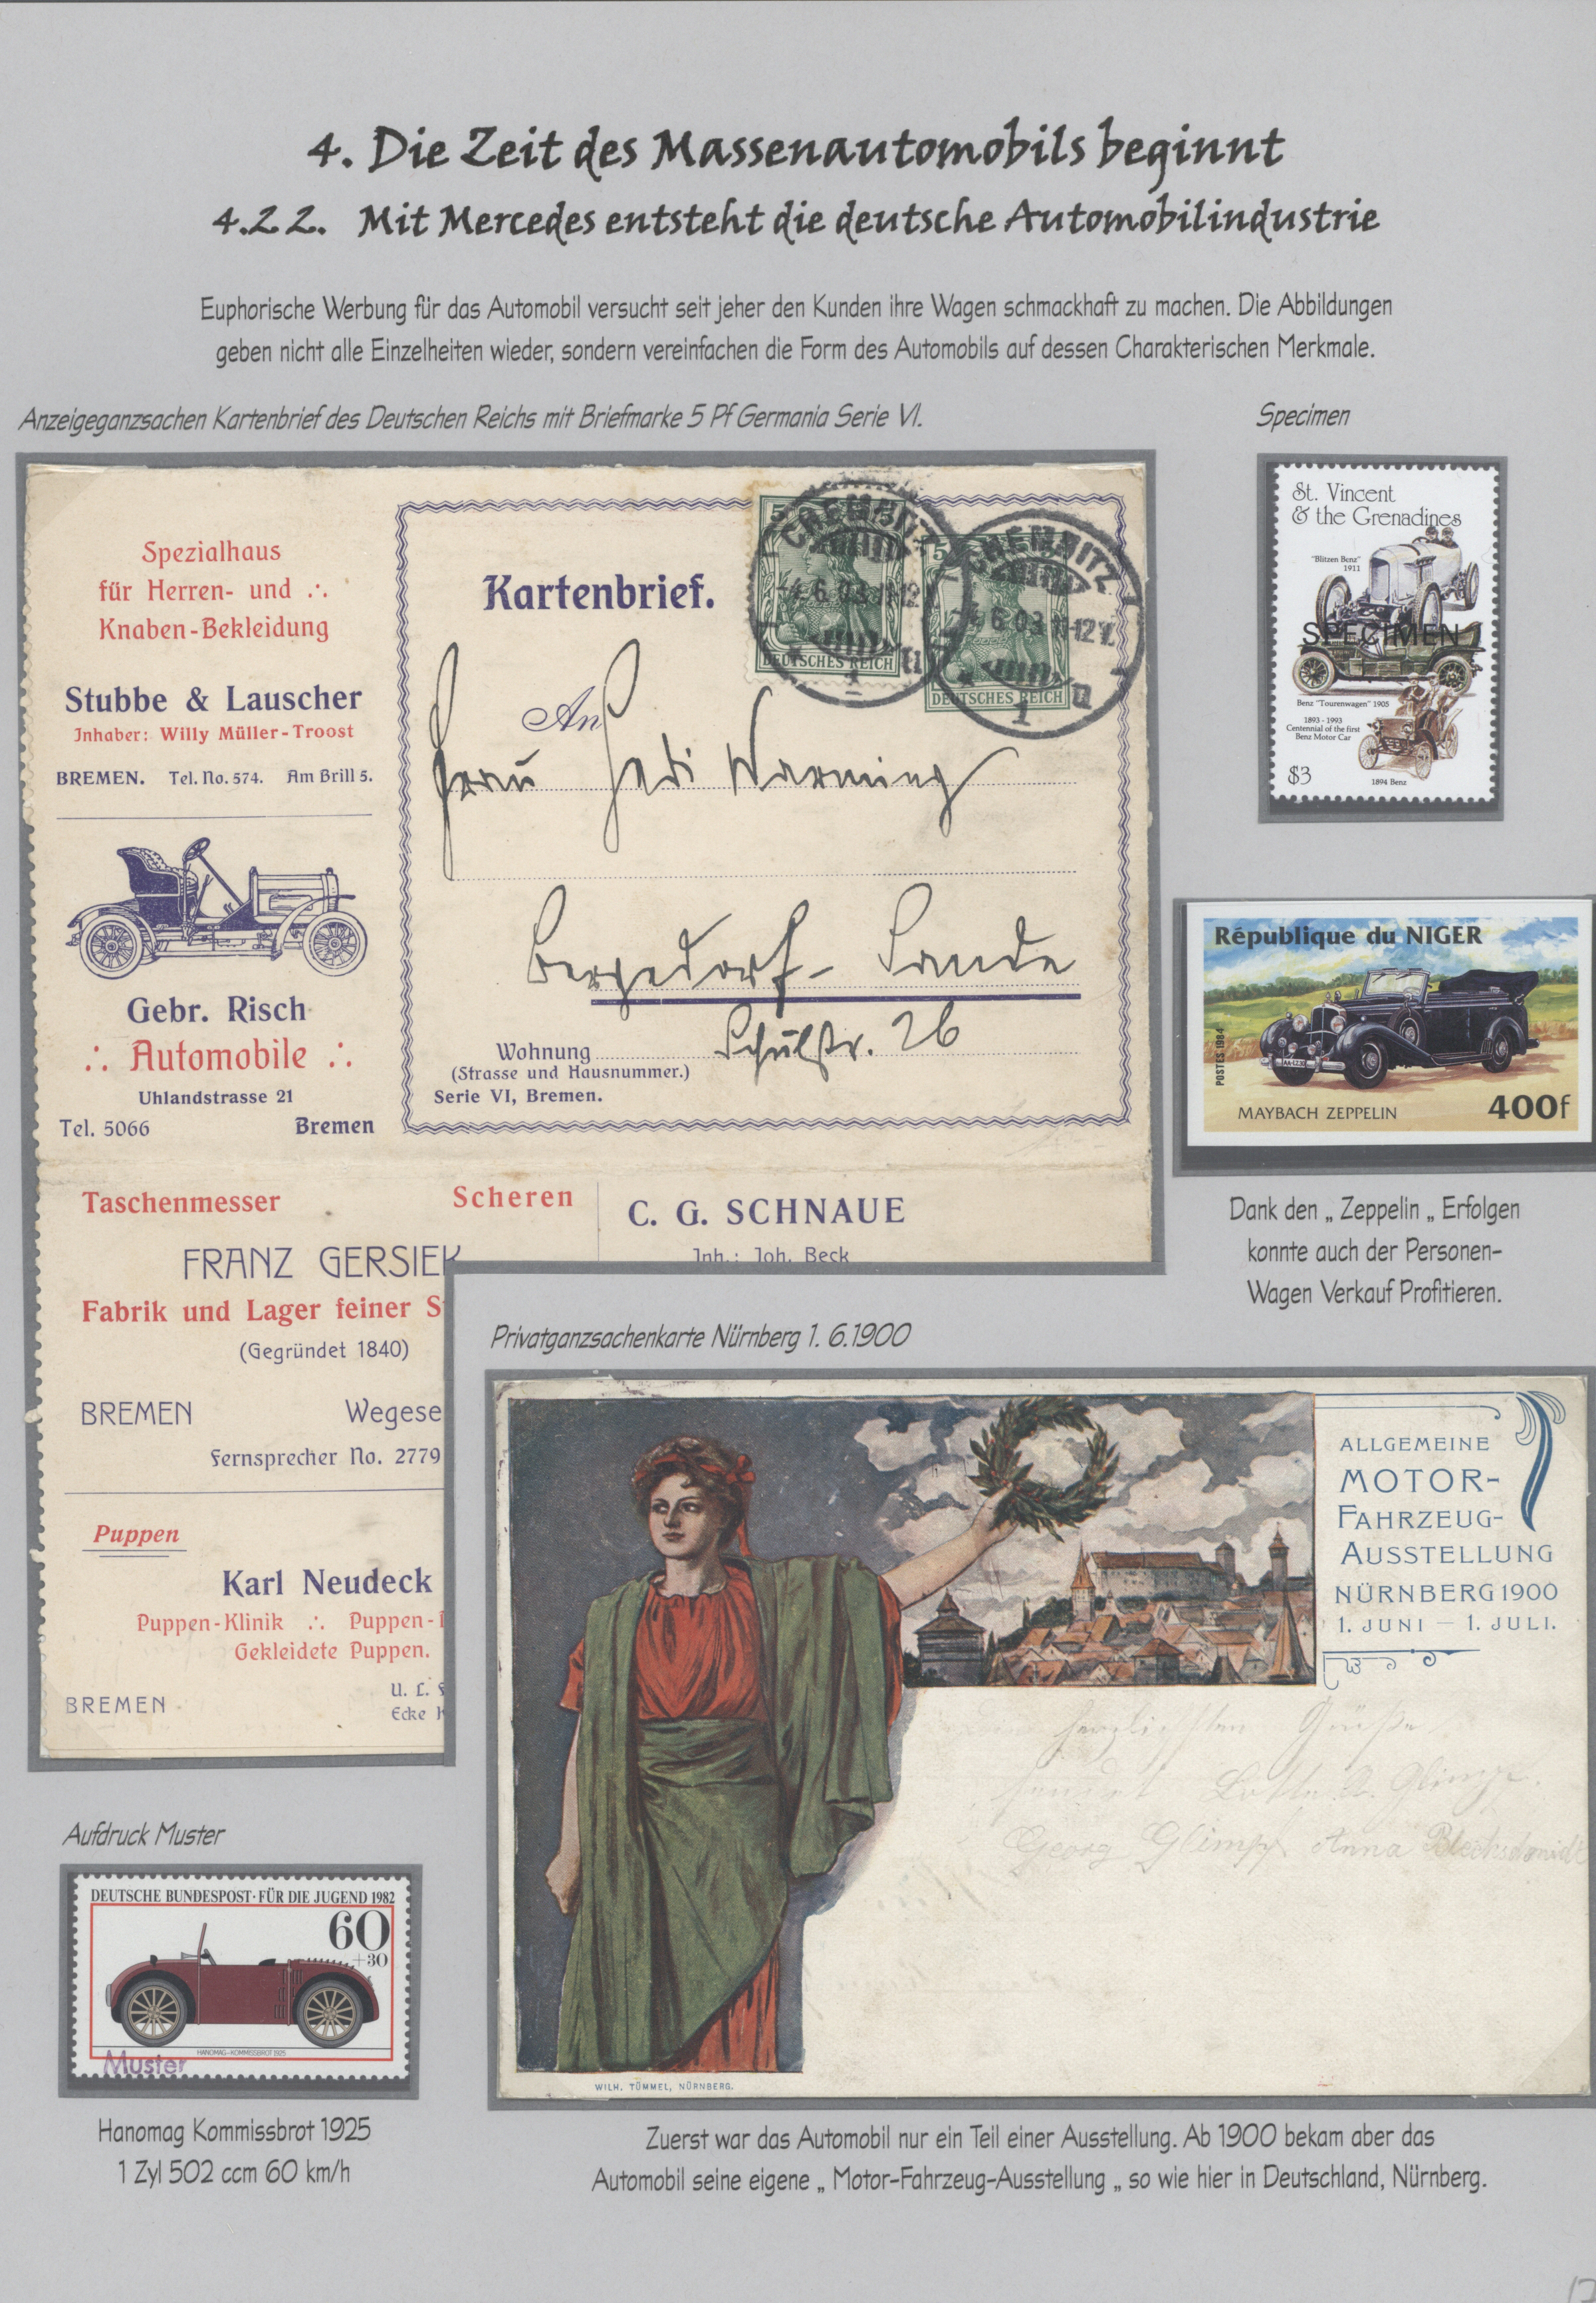 4. Die Zeit des Massenautomobils beginnt
4.2 2. Mit Mercedes entsteht die deutsche Automobilindustrie
Euphorische Werbung für das Automobil versucht seit jeher den Kunden ihre Wagen schmackhaft zu machen. Die Abbildungen
geben nicht alle Einzelheiten wieder, sondern vereinfachen die Form des Automobils auf dessen Charakterischen Merkmale.
Anzeigeganzsachen Kartenbrief des Deutschen Reichs mit Briefmarke 5 Pf Germania Serie VI.
Spezialhaus
für Herren- und ∴
Knaben-Bekleidung
Stubbe & Lauscher
Inhaber: Willy Müller-Troost
BREMEN. Tel. No. 574. Am Brill 5.
Gebr. Risch
∴ Automobile ∴
Uhlandstrasse 21
Tel. 5066 Bremen
Kartenbrief.
CHEMNITZ
CHEMNITZ
DEUTSCHES REICH
DEUTSCHES REICH
An
Frau Hedi Warming
Bergedorf - Sande
Wohnung Schulstr. 26
(Strasse und Hausnummer.)
Serie VI, Bremen.
Taschenmesser Scheren
FRANZ GERSIEK
Fabrik und Lager feiner
(Gegründet 1840)
BREMEN Wegese
Fernsprecher No. 2779
C. G. SCHNAUE
Inh.: Joh. Beck
Puppen
Karl Neudeck
Puppen-Klinik ∴ Puppen-
Gekleidete Puppen.
U. L.
BREMEN Ecke
Specimen
St. Vincent
& the Grenadines
"Blitzen Benz"
1911
SPECIMEN
Benz "Tourenwagen" 1905
1893 - 1993
Centennial of the first
Benz Motor Car
$3
1894 Benz
République du NIGER
POSTES 1984
MAYBACH ZEPPELIN 400f
Dank den „ Zeppelin „ Erfolgen
konnte auch der Personen-
Wagen Verkauf Profitieren.
Privatganzsachenkarte Nürnberg 1. 6.1900
ALLGEMEINE
MOTOR-
FAHRZEUG-
AUSSTELLUNG
NÜRNBERG 1900
1. JUNI — 1. JULI.
herzlichsten Grüße
sendet Lotte
Georg Glimpf Anna Blechschmidt
WILH. TÜMMEL, NÜRNBERG.
Zuerst war das Automobil nur ein Teil einer Ausstellung. Ab 1900 bekam aber das
Automobil seine eigene „ Motor-Fahrzeug-Ausstellung „ so wie hier in Deutschland, Nürnberg.
Aufdruck Muster
DEUTSCHE BUNDESPOST · FÜR DIE JUGEND 1982
60
+30
HANOMAG-KOMMISSBROT 1925
Muster
Hanomag Kommissbrot 1925
1 Zyl 502 ccm 60 km/h